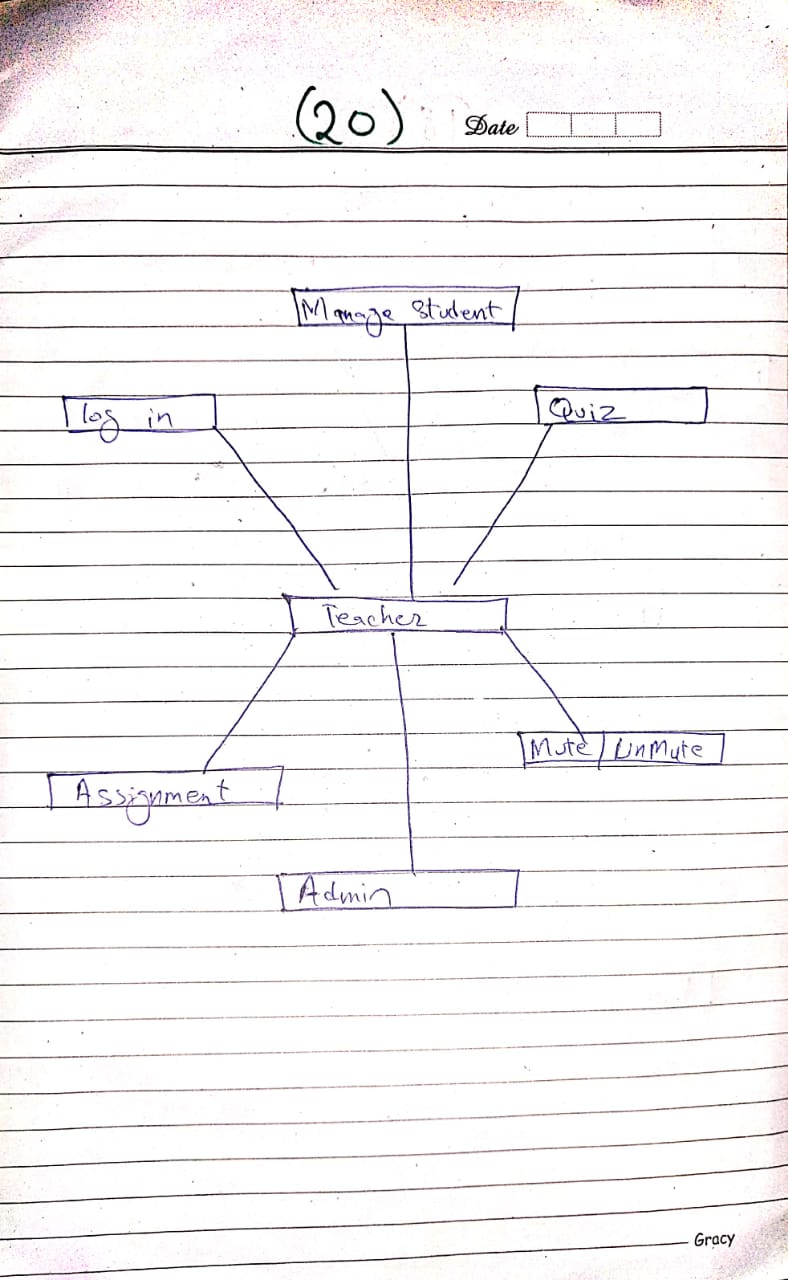 (20)
Date
Manage Student
log in
Quiz
Teacher
Mute / UnMute
Assignment
Admin
Gracy